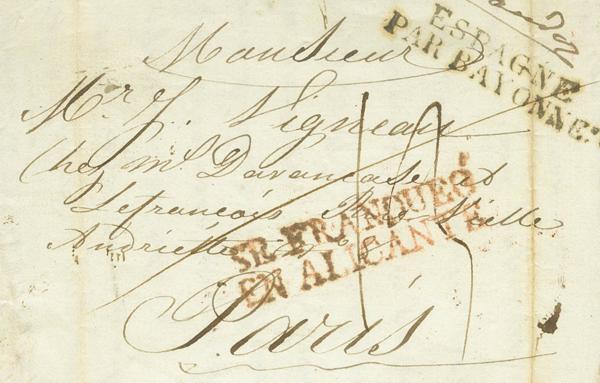 ESPAGNE
PAR BAYONNE.
Monsieur
Mr. J. Vigneau
Chez mrs Davancase et
Lefrancois Rue Vielle
Andriettes
SE FRANQUEÓ
EN ALICANTE
Paris